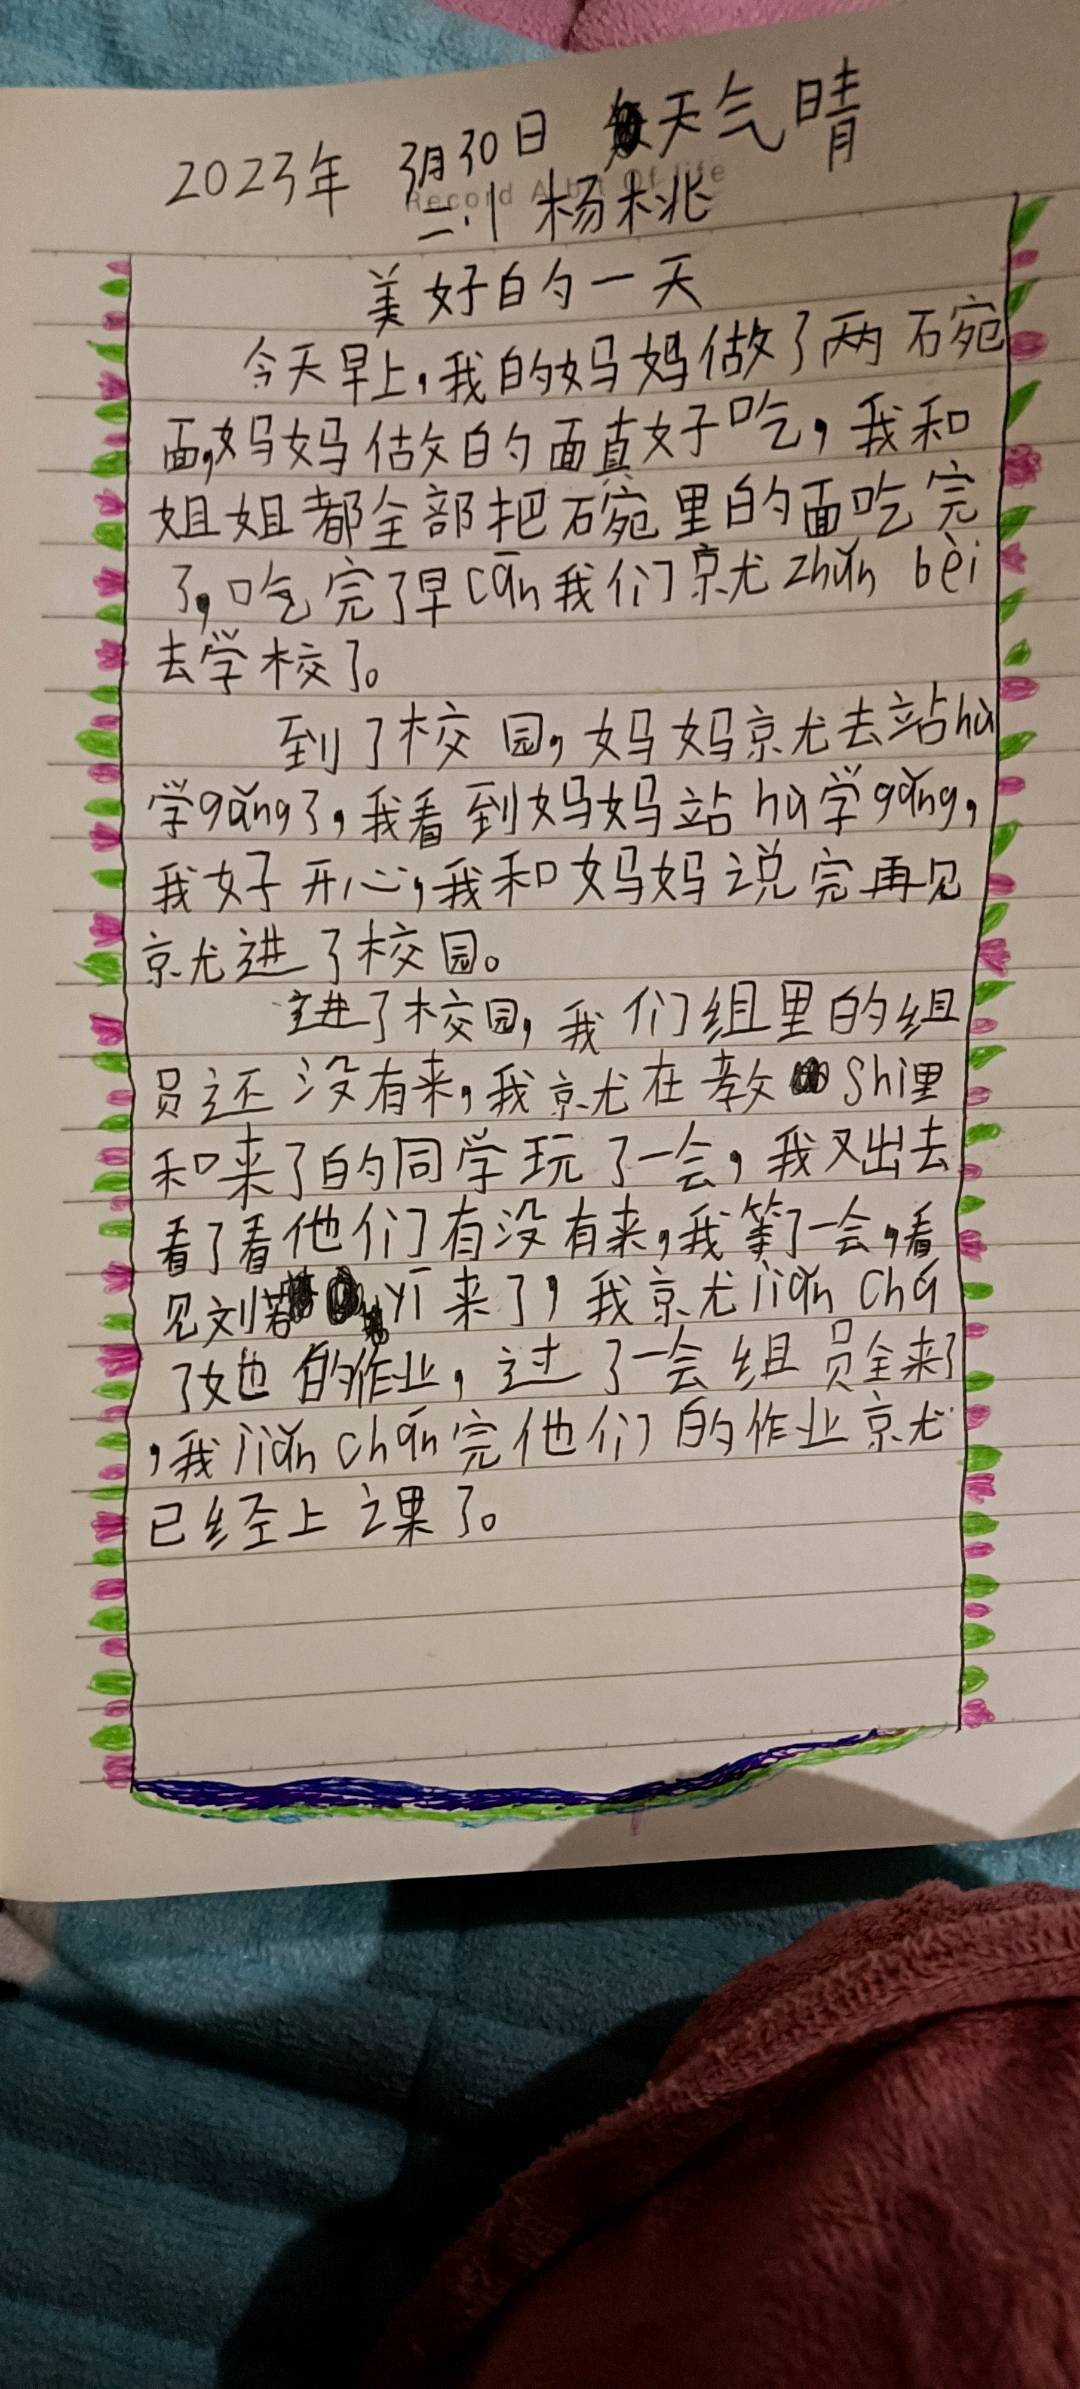 2023年 3月30日 天气晴
Record A bit Of life
二.1 杨桃
美好的一天
今天早上,我的妈妈做了两碗
面,妈妈做的面真好吃,我和
姐姐都全部把碗里的面吃完
了,吃完了早cān我们就zhǔn bèi
去学校了。
到了校园,妈妈就去站hù
学gǎng了,我看到妈妈站hù学gǎng,
我好开心,我和妈妈说完再见
就进了校园。
进了校园,我们组里的组
员还没有来,我就在教shì里
和来了的同学玩了一会,我又出去
看了看他们有没有来,我等了一会,看
见刘若yī来了,我就jiǎn chá
了她的作业,过了一会组员全来了
,我jiǎn chán完他们的作业就
已经上课了。